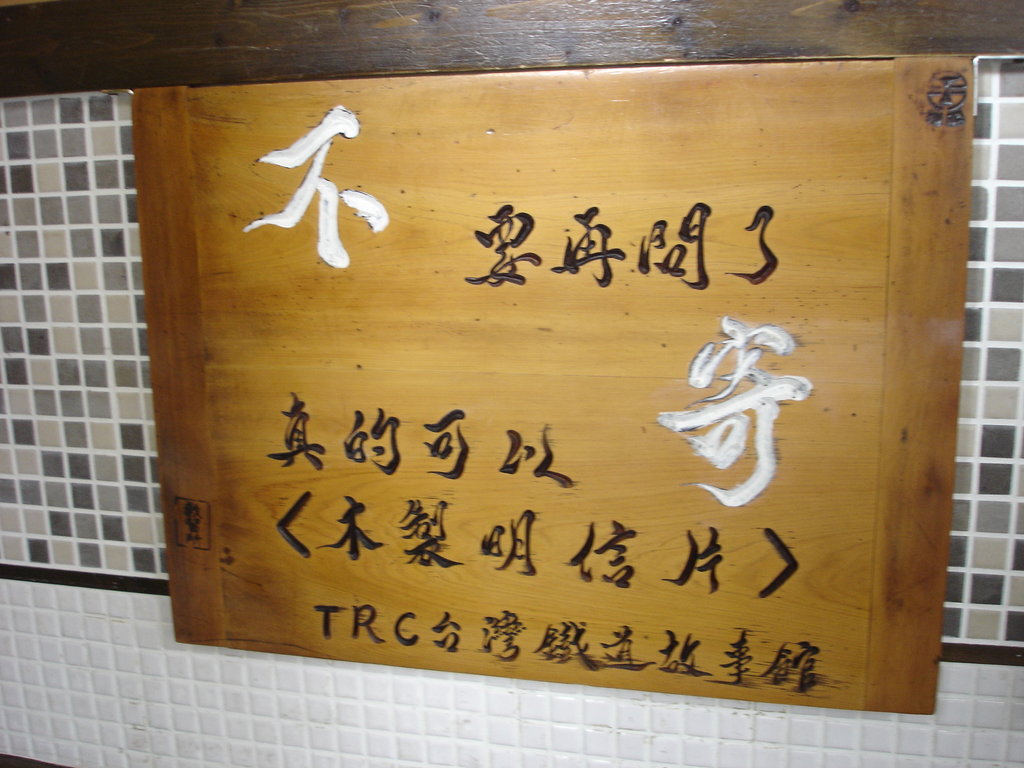 不要再問了
真的可以寄
〈木製明信片〉
TRC台灣鐵道故事館